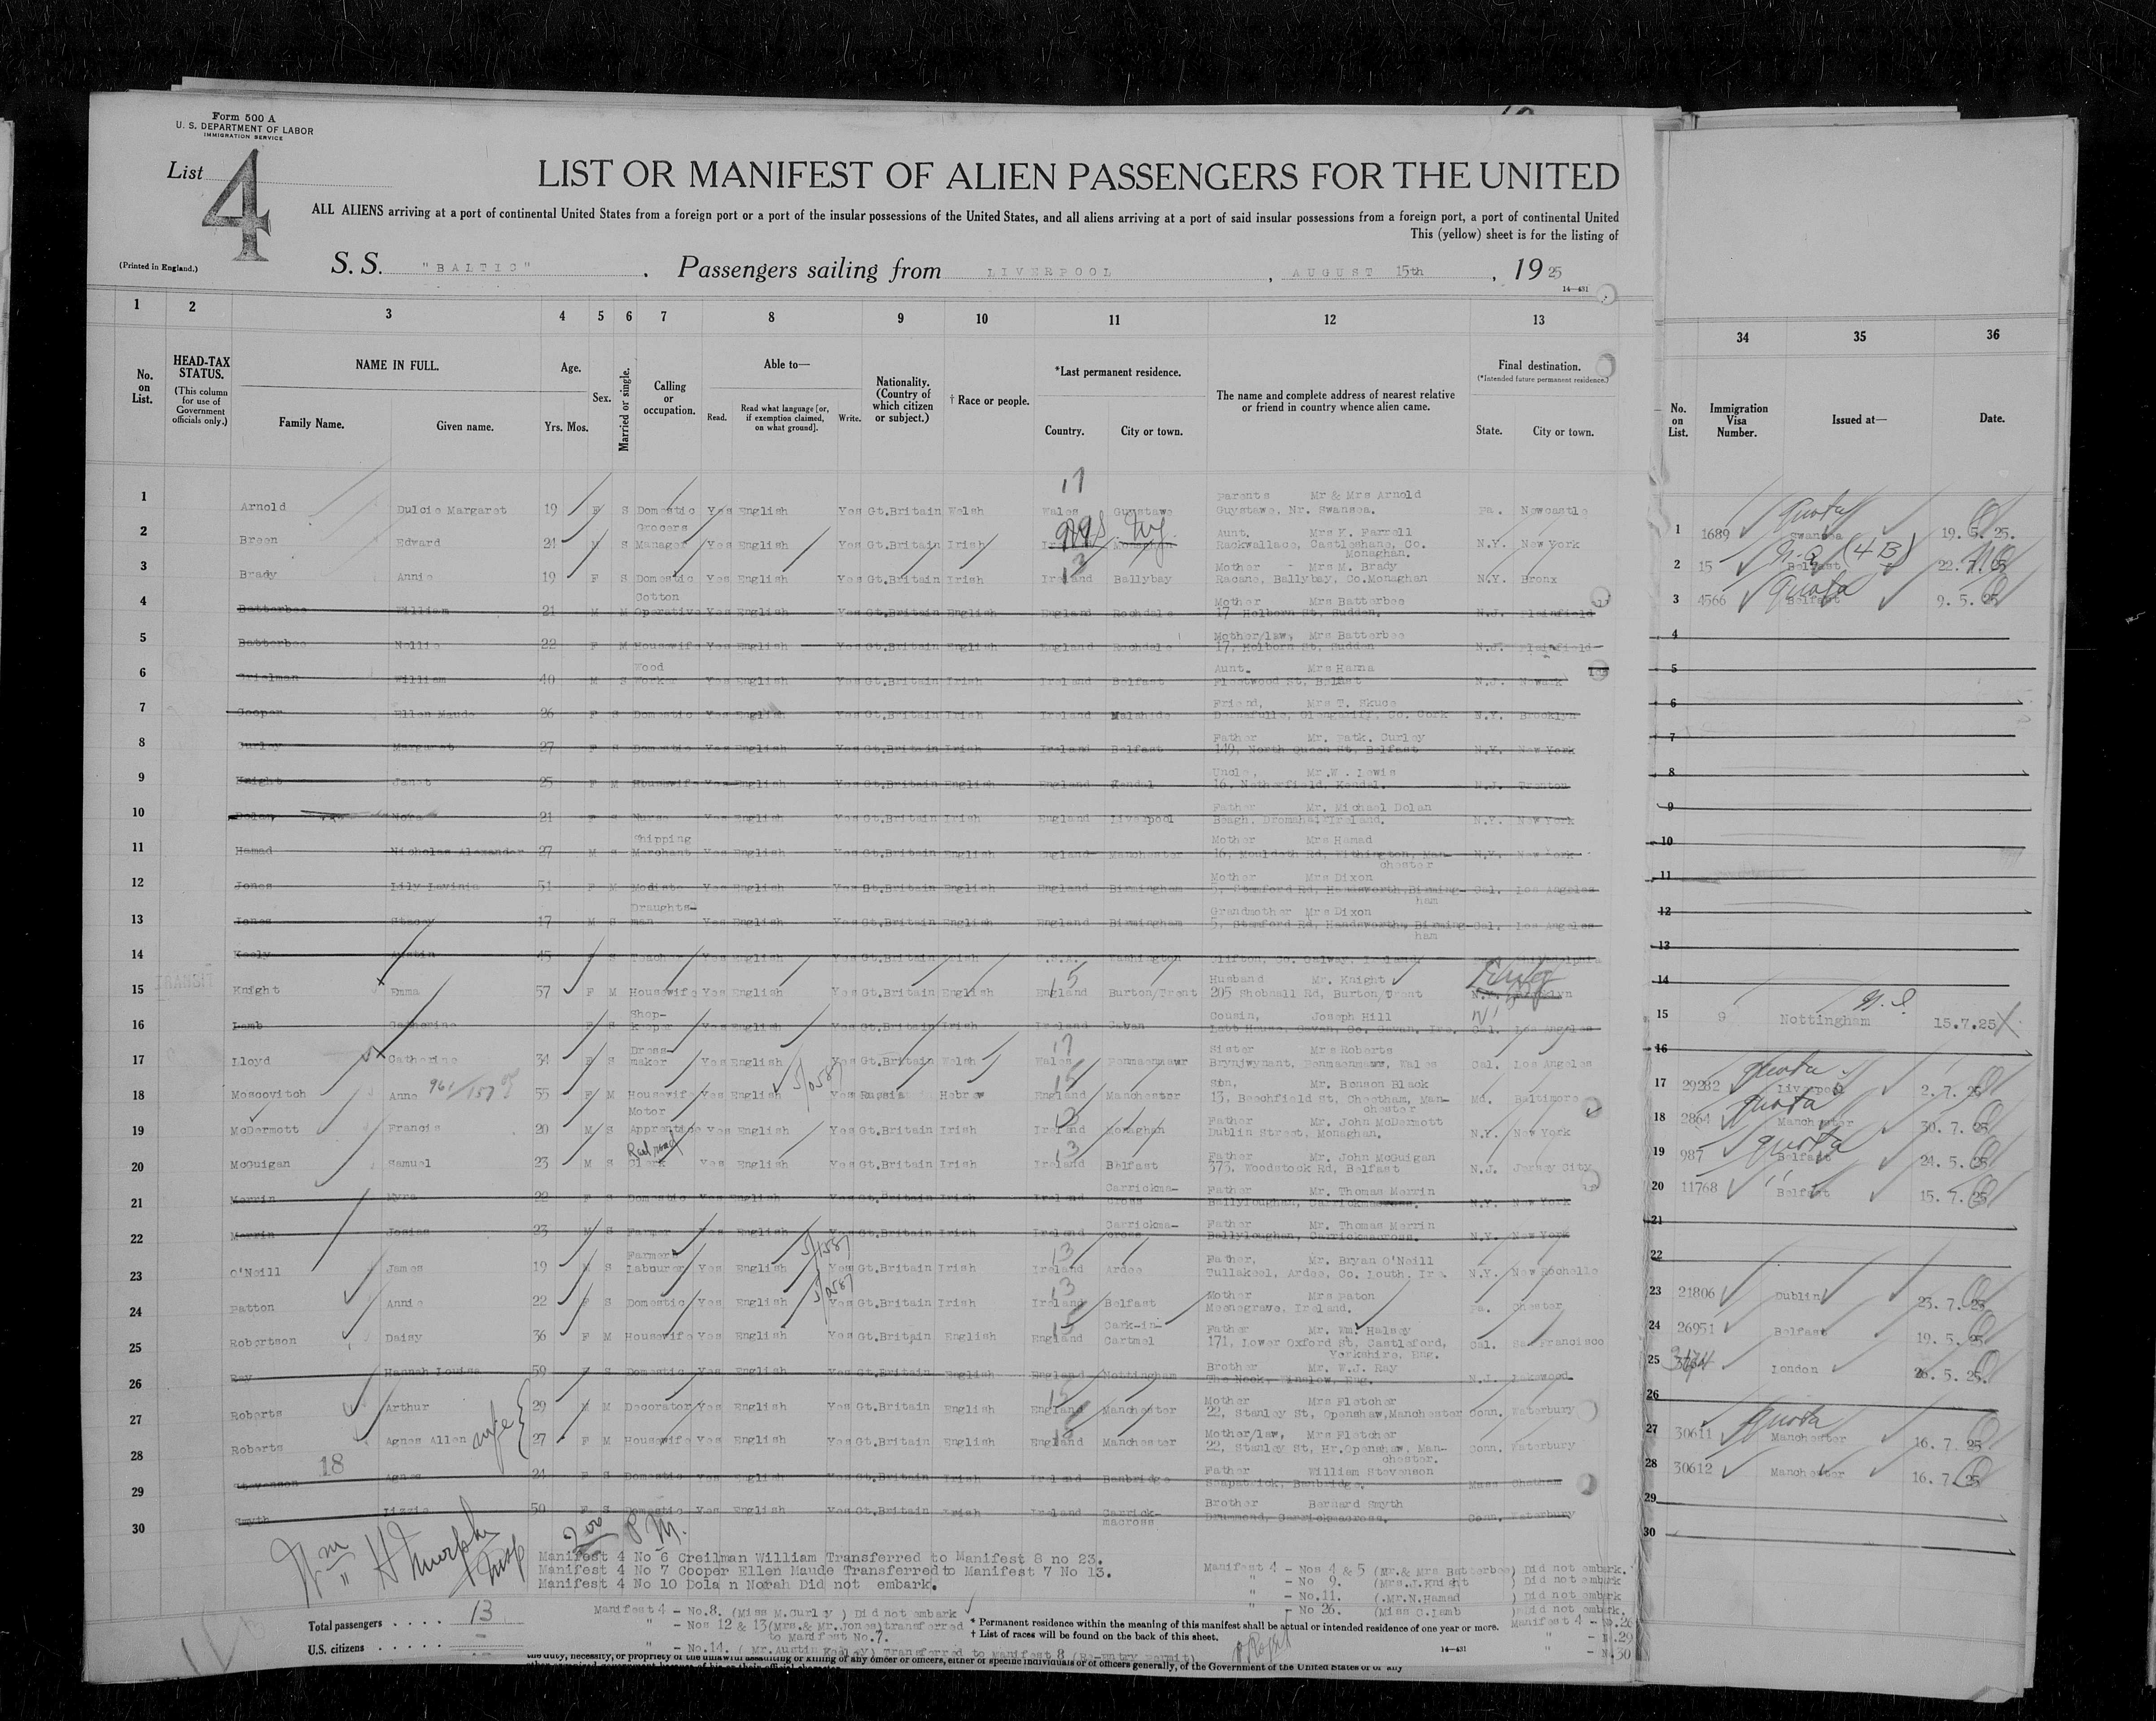 Form 500 A
U. S. DEPARTMENT OF LABOR
IMMIGRATION SERVICE
List 4
LIST OR MANIFEST OF ALIEN PASSENGERS FOR THE UNITED
ALL ALIENS arriving at a port of continental United States from a foreign port or a port of the insular possessions of the United States, and all aliens arriving at a port of said insular possessions from a foreign port, a port of continental United
This (yellow) sheet is for the listing of
(Printed in England.)
S. S. "BALTIC" , Passengers sailing from LIVERPOOL , AUGUST 15th , 19 25
14—431
1 2 3 4 5 6 7 8 9 10 11 12 13 34 35 36
No. on List.
HEAD-TAX STATUS.
(This column for use of Government officials only.)
NAME IN FULL.
Family Name. Given name.
Age.
Yrs. Mos.
Sex.
Married or single.
Calling or occupation.
Able to—
Read. Read what language [or, if exemption claimed, on what ground]. Write.
Nationality. (Country of which citizen or subject.)
† Race or people.
*Last permanent residence.
Country. City or town.
The name and complete address of nearest relative or friend in country whence alien came.
Final destination.
(*Intended future permanent residence.)
State. City or town.
No. on List.
Immigration Visa Number.
Issued at—
Date.
1 Arnold Dulcie Margaret 19 F S Domestic Yes English Yes Gt.Britain Welsh Wales Guystawe Parents Mr & Mrs Arnold Guystawe, Nr. Swansea. Pa. Newcastle 1 1689 Quota Swansea 19. 5. 25.
2 Breen Edward 24 M S Grocers Manager Yes English Yes Gt.Britain Irish Aunt. Mrs K. Farrell Rackwallace, Castleshane, Co. Monaghan. N.Y. New York 2 15 (4B) Belfast 22. 7. 25
3 Brady Annie 19 F S Domestic Yes English Yes Gt.Britain Irish Ireland Ballybay Mother - Mrs M. Brady Racane, Ballybay, Co.Monaghan N.Y. Bronx 3 4566 Quota Belfast 9. 5. 25
4 Batterbee William 21 M M Cotton Operative Yes English Yes Gt.Britain English England Rochdale Mother Mrs Batterbee 17 Holborn St, Sudden. N.J. Plainfield 4
5 Batterbee Nellie 22 F M Housewife Yes English Yes Gt.Britain English England Rochdale Mother/law, Mrs Batterbee 17, Holborn St, Sudden N.J. Plainfield 5
6 William 40 M S Wood Worker Yes English Yes Gt.Britain Irish Ireland Belfast Aunt. Mrs Hanna Fleetwood St, Belfast N.J. Newark 6
7 Cooper Ellen Maude 26 F S Domestic Yes English Yes Gt.Britain Irish Ireland Malahide Friend, Mrs T. Co. Cork N.Y. Brooklyn 7
8 Curley Margaret 27 F S Domestic Yes English Yes Gt.Britain Irish Ireland Belfast Father Mr. Patk. Curley 149, North Queen St, Belfast N.Y. New York 8
9 Knight Janet 25 F M Housewife Yes English Yes Gt.Britain English England Kendal Uncle, Mr.W. Lewis 16, Netherfield, Kendal. N.J. Trenton 9
10 Dolan Nora 21 F S Nurse Yes English Yes Gt.Britain Irish England Liverpool Father Mr. Michael Dolan Beagh, Ireland. N.Y. New York 10
11 Hamad Nicholas Alexander 27 M S Shipping Merchant Yes English Yes Gt.Britain English England Manchester Mother Mrs Hamad 16, Mouldeth Rd, Withington, Manchester N.Y. New York 11
12 Jones Lily Lavinia 51 F M Modiste Yes English Yes Gt.Britain English England Birmingham Mother Mrs Dixon 5, Stamford Rd, Handsworth, Birmingham Cal. Los Angeles 12
13 Jones Stacey 17 M S Draughts-man Yes English Yes Gt.Britain English England Birmingham Grandmother Mrs Dixon 5, Stamford Rd, Handsworth, Birmingham Cal. Los Angeles 13
14 Austin 45 S Teacher Yes English Yes Gt.Britain Irish U.S.A. Washington Clifton, Co. Galway, Ireland 14
15 Knight Emma 57 F M Housewife Yes English Yes Gt.Britain English England Burton/Trent Husband Mr. Knight 205 Shobnall Rd, Burton/Trent N.Y. Brooklyn 15 9 Nottingham 15.7.25
16 Lamb Catherine F S Shop-keeper Yes English Yes Gt.Britain Irish Ireland Cavan Cousin, Joseph Hill Cavan, Co. Cavan, Ire. Cal. Los Angeles 16
17 Lloyd Catherine 34 F S Dress-maker Yes English Yes Gt.Britain Welsh Wales Penmaenmawr Sister Mrs Roberts Brynjwynant, Penmaenmawr, Wales Cal. Los Angeles 17 29282 Quota Liverpool 2. 7. 25
18 Moscovitch Anne 55 F M Housewife Yes English Yes Russia Hebrew England Manchester Son, Mr. Benson Black 13, Beechfield St, Cheetham, Manchester Md. Baltimore 18 2864 Quota Manchester 30. 7. 25
19 McDermott Francis 20 M S Motor Apprentice Yes English Yes Gt.Britain Irish Ireland Monaghan Father Mr. John McDermott Dublin Street, Monaghan. N.Y. New York 19 987 Quota Belfast 24. 5. 25
20 McGuigan Samuel 23 M S Railroad Clerk Yes English Yes Gt.Britain Irish Ireland Belfast Father Mr. John McGuigan 373, Woodstock Rd, Belfast N.J. Jersey City 20 11768 Belfast 15. 7. 25
21 Merrin Myra 22 F S Domestic Yes English Yes Gt.Britain Irish Ireland Carrickma-cross Father Mr. Thomas Merrin Ballyloughan, Carrickmacross. N.Y. New York 21
22 Merrin Josias 23 M S Farmer Yes English Yes Gt.Britain Irish Ireland Carrickma-cross Father Mr. Thomas Merrin Ballyloughan, Carrickmacross. N.Y. New York 22
23 O'Neill James 19 M S Farmer Labourer Yes English Yes Gt.Britain Irish Ireland Ardee Father, Mr. Bryan O'Neill Tullakeel, Ardee, Co. Louth, Ire. N.Y. New Rochelle 23 21806 Dublin 23. 7. 25
24 Patton Annie 22 F S Domestic Yes English Yes Gt.Britain Irish Ireland Belfast Mother Mrs Paton Meenagrave, Ireland. Pa. Chester 24 26951 Belfast 19. 5. 25
25 Robertson Daisy 36 F M Housewife Yes English Yes Gt.Britain English England Cark-in-Cartmel Father Mr. Wm. Halsey 171, Lower Oxford St, Castleford, Yorkshire, Eng. Cal. San Francisco 25 London 26. 5. 25.
26 Ray Hannah Louisa 59 F S Domestic Yes English Yes Gt.Britain English England Nottingham Brother Mr. W.J. Ray The Nook, Winslow, Eng. N.J. Lakewood 26
27 Roberts Arthur 29 M M Decorator Yes English Yes Gt.Britain English England Manchester Mother Mrs Fletcher 22, Stanley St, Openshaw, Manchester Conn. Waterbury 27 30611 Quota Manchester 16. 7. 25
28 Roberts Agnes Allen wife 27 F M Housewife Yes English Yes Gt.Britain English England Manchester Mother/law, Mrs Fletcher 22, Stanley St, Hr.Openshaw, Manchester. Conn. Waterbury 28 30612 Manchester 16. 7. 25
18
29 Stevenson Agnes 24 F S Domestic Yes English Yes Gt.Britain Irish Ireland Banbridge Father William Stevenson Seapatrick, Banbridge. Mass Chatham 29
30 Smyth Lizzie 50 F S Domestic Yes English Yes Gt.Britain Irish Ireland Carrick-macross Brother Bernard Smyth Drummond, Carrickmacross. Conn. Waterbury 30
Wm H Murphy Insp
2 00 P. M.
Manifest 4 No 6 Creilman William Transferred to Manifest 8 no 23.
Manifest 4 No 7 Cooper Ellen Maude Transferred to Manifest 7 No 13.
Manifest 4 No 10 Dola n Norah Did not embark.
Manifest 4 - Nos 4 & 5 (Mr.& Mrs Batterbee) Did not embark.
" - No 9. (Mrs.J.Knight ) Did not embark
" - No.11. (.Mr.N.Hamad ) Did not embark
" - No 26. (Miss C.Lamb ) Did not embark.
Manifest 4 - No.8. (Miss M.Curley ) Did not embark
" - Nos 12 & 13(Mrs.& Mr.Jones)transferred to Manifest No.7.
" - No.14. ( Mr.Austin Kealey) Transferred to Manifest 8 (Re-entry permit)
Manifest 4 - No.26
" - No.29
" - No.30
Total passengers . . . . . 13
U.S. citizens . . . . . . –
* Permanent residence within the meaning of this manifest shall be actual or intended residence of one year or more.
† List of races will be found on the back of this sheet.
14—431
the duty, necessity, or propriety of the unlawful assaulting or killing of any officer or officers, either of specific individuals or of officers generally, of the Government of the United States or of any